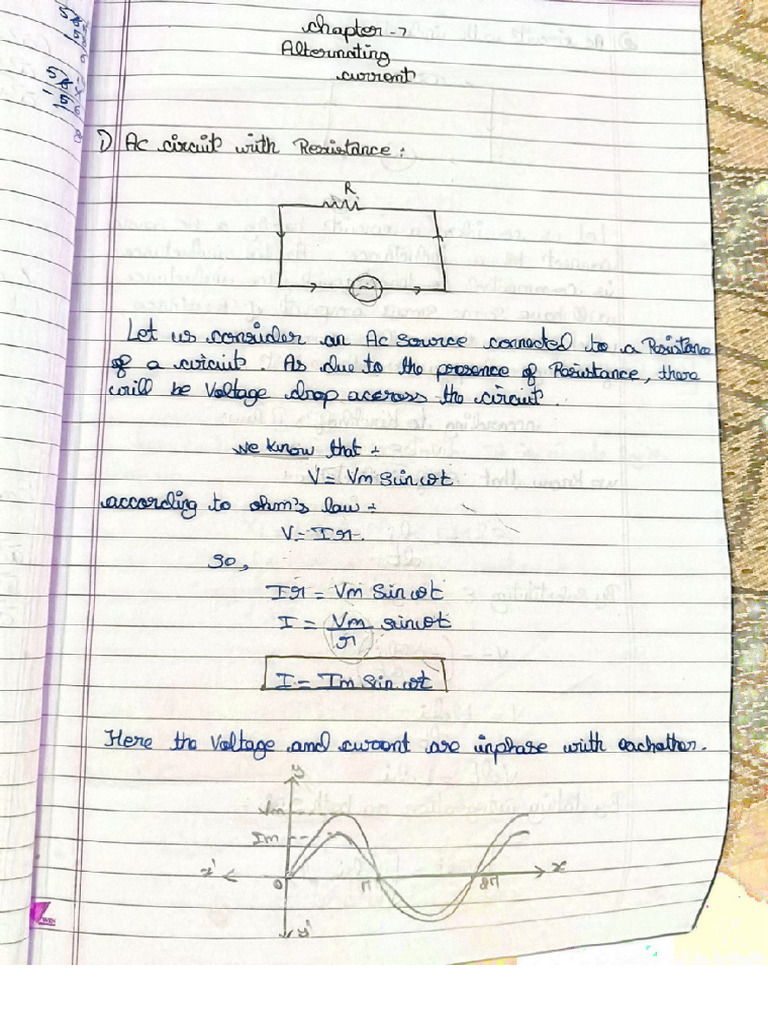 Chapter - 7
Alternating
current
1) Ac circuit with Resistance :
R
~
Let us consider an Ac source connected to a Resistance
of a circuit. As due to the presence of Resistance, there
will be Voltage drop accross the circuit.
we know that :-
V = Vm Sin ωt
according to ohm's law :-
V = Ir.
So,
Ir = Vm Sin ωt
I = Vm/r sin ωt
I = Im Sin ωt
Here the Voltage and current are inphase with eachother.
y
Vm
Im
x' 0 π 2π x
y'